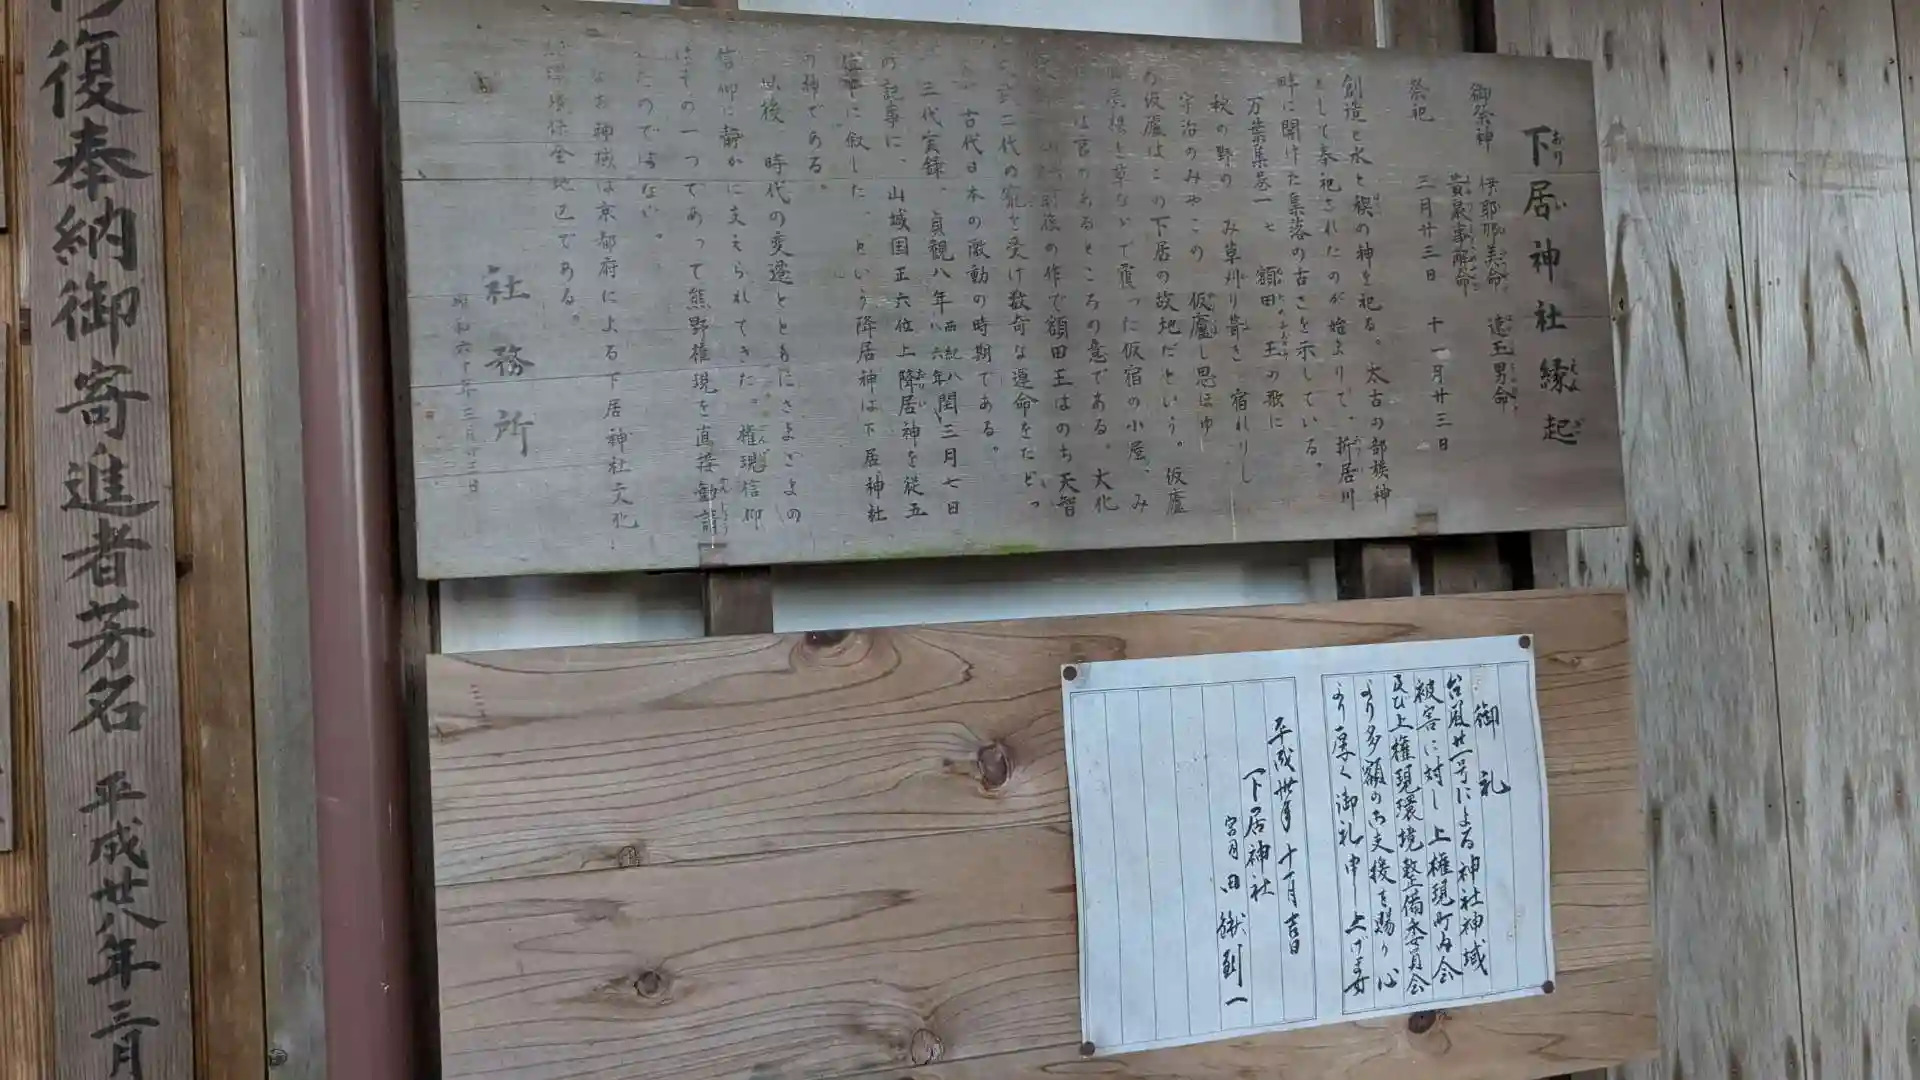 下居神社縁起
おりい えんぎ
御祭神 伊耶那美命 速玉男命
事解命
祭祀 三月廿三日 十一月廿三日
創造と水と禊の神を祀る。太古の部族神
として奉祀されたのが始まりで、折居川
畔に開けた集落の古さを示している。
万葉集巻一 七 額田王の歌に
秋の野の み草刈り葺き 宿れりし
宇治のみやこの 仮廬し思ほゆ
の仮廬はこの下居の故地だという。仮廬
と草などで覆った仮宿の小屋、み
は宮のあるところの意である。大化
後の作で額田王はのち天智
二代の寵を受け数奇な運命をたどっ
古代日本の激動の時期である。
三代実録、貞観八年(西紀八六六年)閏三月七日
の記事に、山城国正六位上降居神を従五
位下に叙した、という降居神は下居神社
の神である。
以後 時代の変遷とともにさまざまの
信仰に静かに支えられてきた。権現信仰
はその一つであって熊野権現を直接勧請
したのではない。
なお神域は京都府による下居神社文化
環境保全地区である。
社務所
昭和六十年三月廿三日
修復奉納御寄進者芳名 平成廿八年三月
御礼
台風廿一号による神社神域
被害に対し上権現町内会
及び上権現環境整備委員会
より多額の御支援を賜り心
より厚く御礼申し上げます
平成卅年十一月吉日
下居神社
宮司